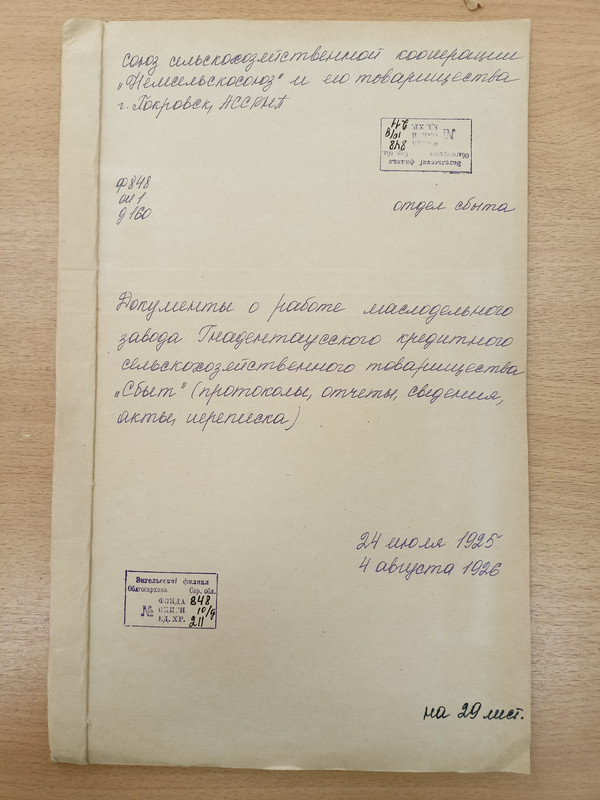 Союз сельскохозяйственной кооперации
„Немсельскосоюз" и его товарищества
г. Покровск, АССРНП
Энгельсский филиал
Облгосархива Сар. обл.
ФОНДА 848
№ ОПИСИ 10/9
ЕД. ХР. 211
ф 848
оп 1
д 160
отдел сбыта
Документы о работе маслодельного
завода Гнадентаусского кредитного
сельскохозяйственного товарищества
„Сбыт" (протоколы, отчеты, сведения,
акты, переписка)
24 июля 1925
4 августа 1926
Энгельсский филиал
Облгосархива Сар. обл.
ФОНДА 848
№ ОПИСИ 10/9
ЕД. ХР. 211
на 29 лист.